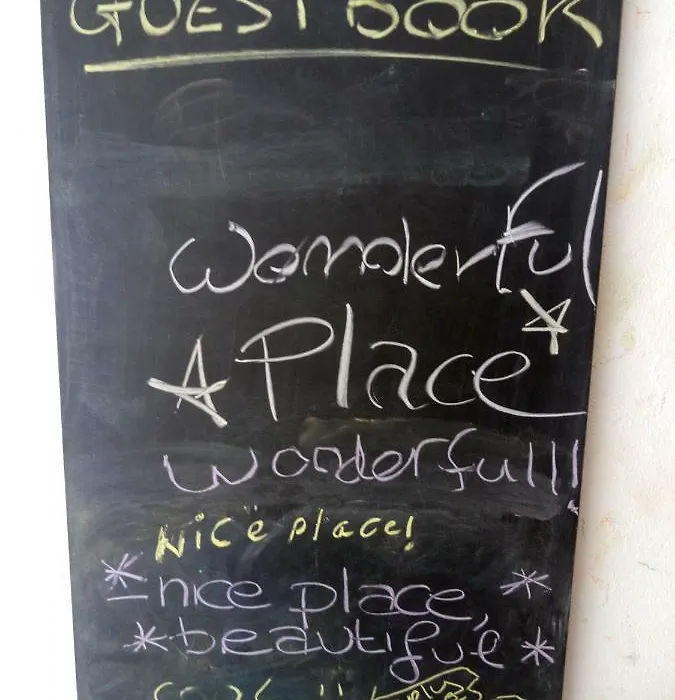 GUEST BOOK
Wonderful
Place
Wonderful!!
Nice place!
nice place,
beautiful